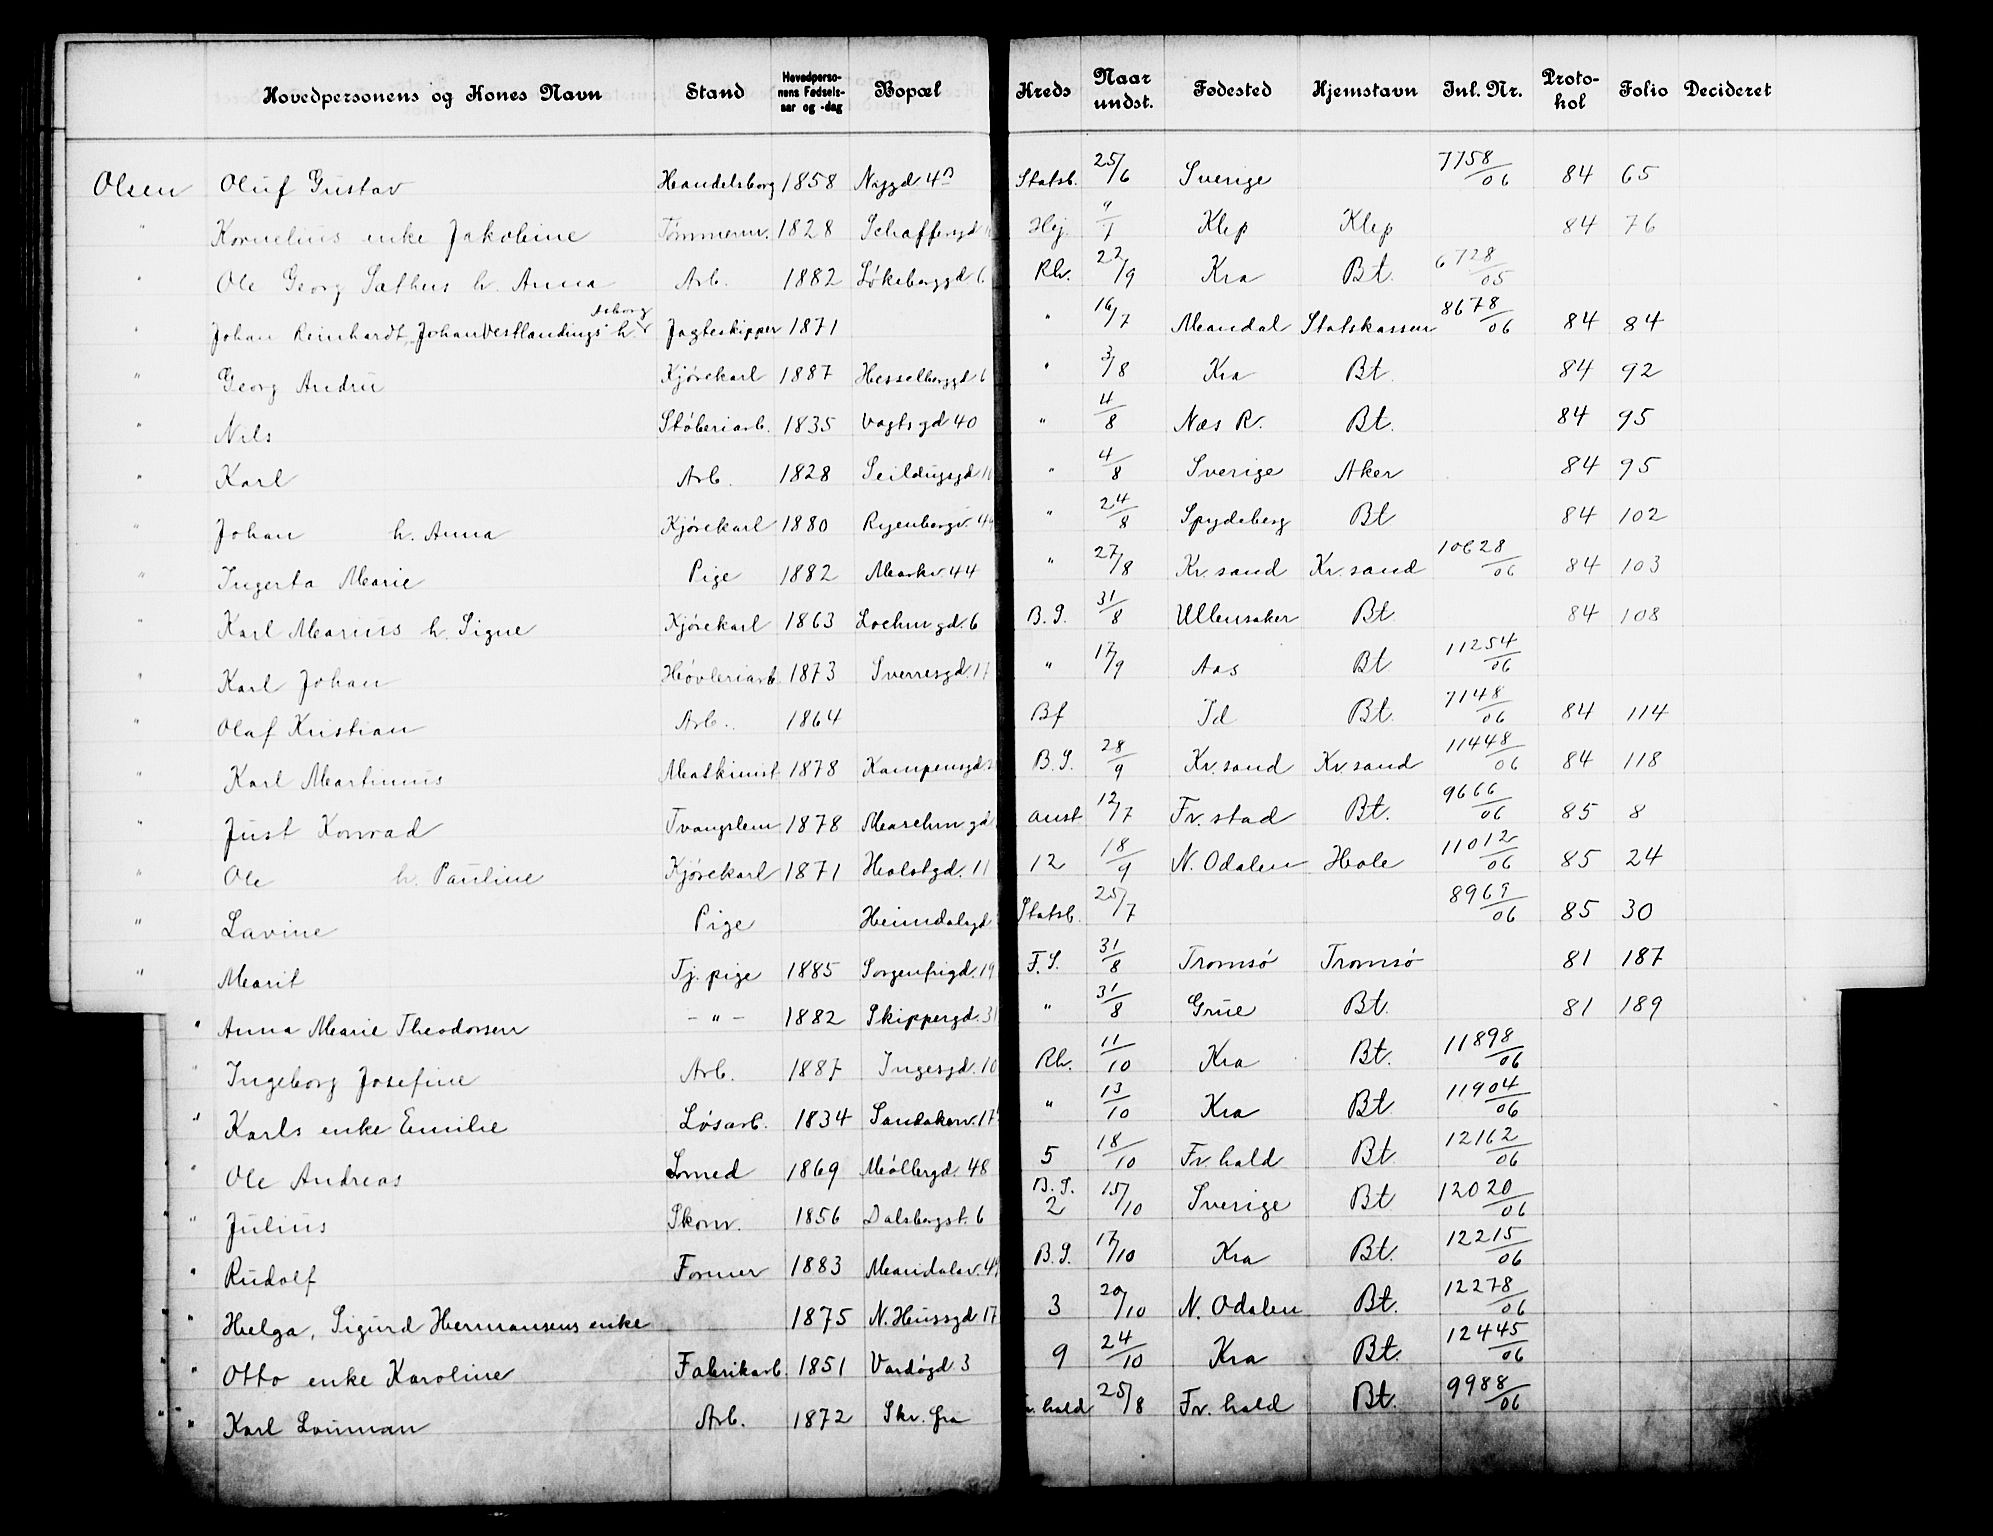 Hovedpersonens og Kones Navn Stand Hovedperso-nens Fødsels-aar og -dag Bopæl Kreds Naar undst. Fødested Hjemstavn Inl. Nr. Proto-kol Folio Decideret
Olsen Oluf Gustav Handelsborg 1858 Nygd 4 Statsb. 25/6 Sverige 7758/06 84 65
" Kornelius enke Jakobine Tømmerm. 1828 Schaffersgd Hej. Klep Klep 84 76
" Ole Georg Sæthus h. Anna Arb. 1882 Løkeberggd 6 Rh. 22/9 Kra Bt. 6728/05
" Johan Reinhardt, Johan Vestlandings h. Asborg Jagteskipper 1871 " 16/7 Mandal Statskassen 8678/06 84 84
" Georg Andru Kjørekarl 1887 Hesselberggd 6 " 3/8 Kra Bt. 84 92
" Nils Støberiarb. 1835 Vogtsgd 40 " 4/8 Næs R. Bt. 84 95
" Karl Arb. 1828 Seildugsgd " 4/8 Sverige Aker 84 95
" Johan h. Anna Kjørekarl 1880 Ryenbergv. " 24/8 Spydeberg Bt 84 102
" Ingerta Marie Pige 1882 Markv. 44 " 27/8 Kr.sand Kr.sand 10628/06 84 103
" Karl Marius h. Signe Kjørekarl 1863 Lochmgd. 6 B.S. 31/8 Ullensaker Bt. 84 108
" Karl Johan Høvleriarb. 1873 Sverresgd. 17 " 17/9 Aas Bt 11254/06
" Olaf Kristian Arb. 1864 Bf Id Bt. 7148/06 84 114
" Karl Martinius Maskinist 1878 Kampensgd B.S. 28/9 Kr.sand Kr.sand 11448/06 84 118
" Just Konrad Tvangslem 1878 Maschmgd anst 12/7 Fr.stad Bt. 9666/06 85 8
" Ole h. Pauline Kjørekarl 1871 Holstgd. 11 12 18/9 N. Odalen Hole 11012/06 85 24
" Lavine Pige Heimdalsgd Statsb. 25/7 8969/06 85 30
" Marit Tj. pige 1885 Sorgenfrigd. 19 F.S. 31/8 Tromsø Tromsø 81 187
" Anna Marie Theodorsen - " - 1882 Skippergd. 31 " 31/8 Grue Bt. 81 189
" Ingeborg Josefine Arb. 1887 Ingesgd. 10 Rh. 11/10 Kra Bt. 11898/06
" Karls enke Emilie Løsarb. 1834 Sandakerv. 17 " 13/10 Kra Bt 11904/06
" Ole Andreas Smed 1869 Møllergd. 48 5 18/10 Fr.hald Bt. 12162/06
" Julius Skom. 1856 Dalsbergst. 6 B.S. 2 15/10 Sverige Bt 12020/06
" Rudolf Former 1883 Mandalsv. B.S. 17/10 Kra Bt. 12215/06
" Helga, Sigurd Hermansens enke 1875 N. Hussgd 17 3 20/10 N. Odalen Bt. 12278/06
" Otto enke Karoline Fabrikarb. 1851 Vardøgd 3 9 24/10 Kra Bt. 12445/06
" Karl Louman Arb. 1872 Skr. fra hald 25/8 Fr. hald Bt. 9988/06